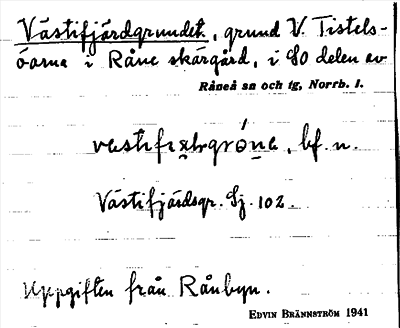 Västifjärdgrundet, grund V. Tistels-
öarna i Råne skärgård, i SO delen av
Råneå sn och tg, Norrb. l.
bf. n.
Västifjärdsgr. Sj. 102.
Uppgiften från Rånbyn.
EDVIN BRÄNNSTRÖM 1941